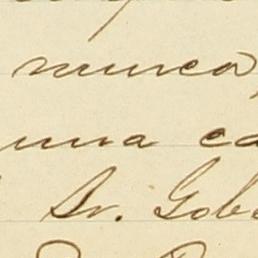 nunca,
una ca
Sr. Gobe